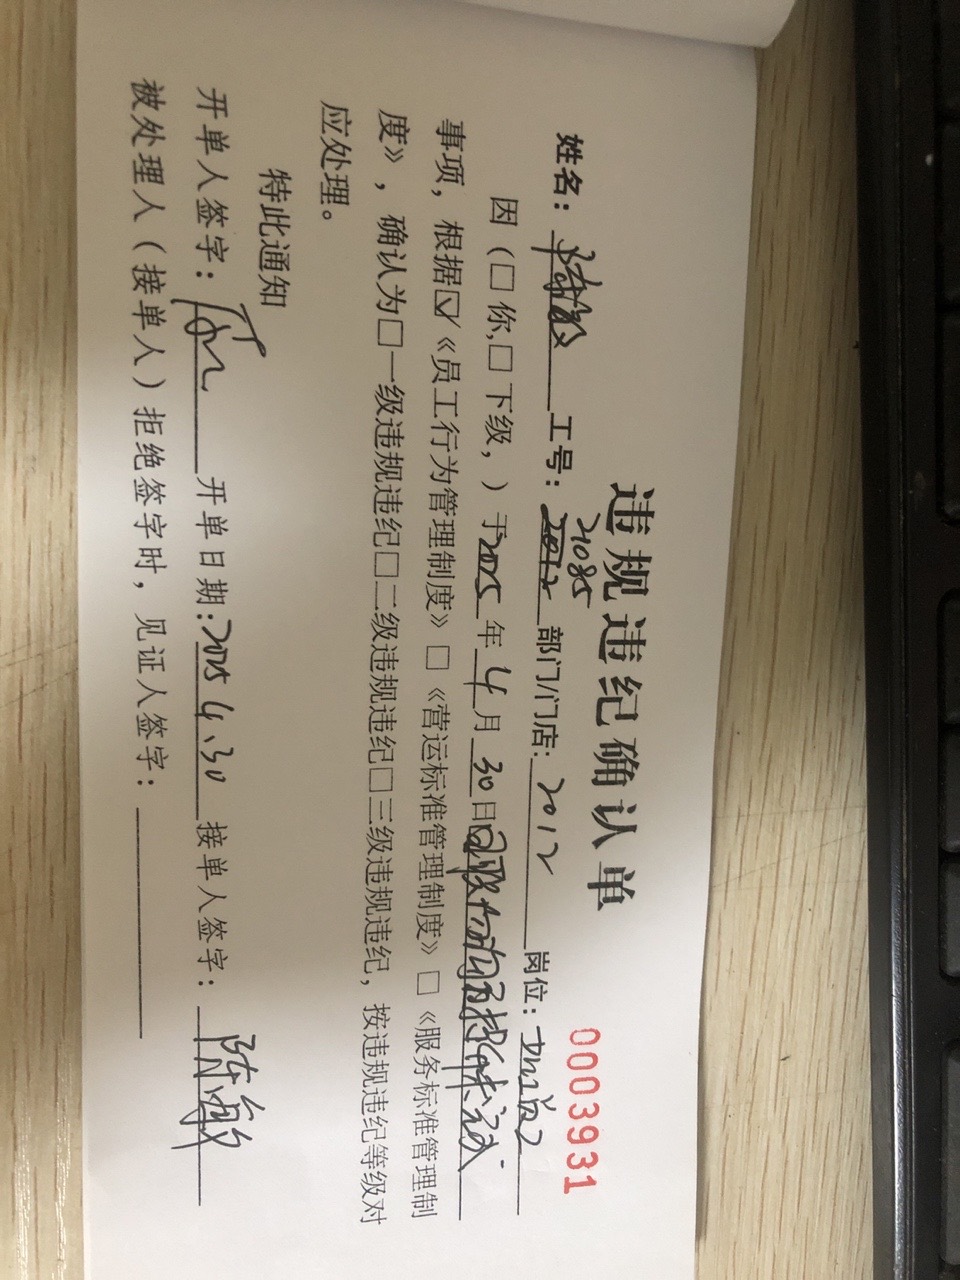 违规违纪确认单
0003931
姓名：陈 工号：21085 部门/门店：2012 岗位：
因（□ 你,□ 下级，）于2025年4月30日
事项，根据☑《员工行为管理制度》□《营运标准管理制度》□《服务标准管理制
度》，确认为□一级违规违纪□二级违规违纪□三级违规违纪，按违规违纪等级对
应处理。
特此通知
开单人签字： 开单日期：2025.4.30 接单人签字：陈
被处理人（接单人）拒绝签字时，见证人签字：